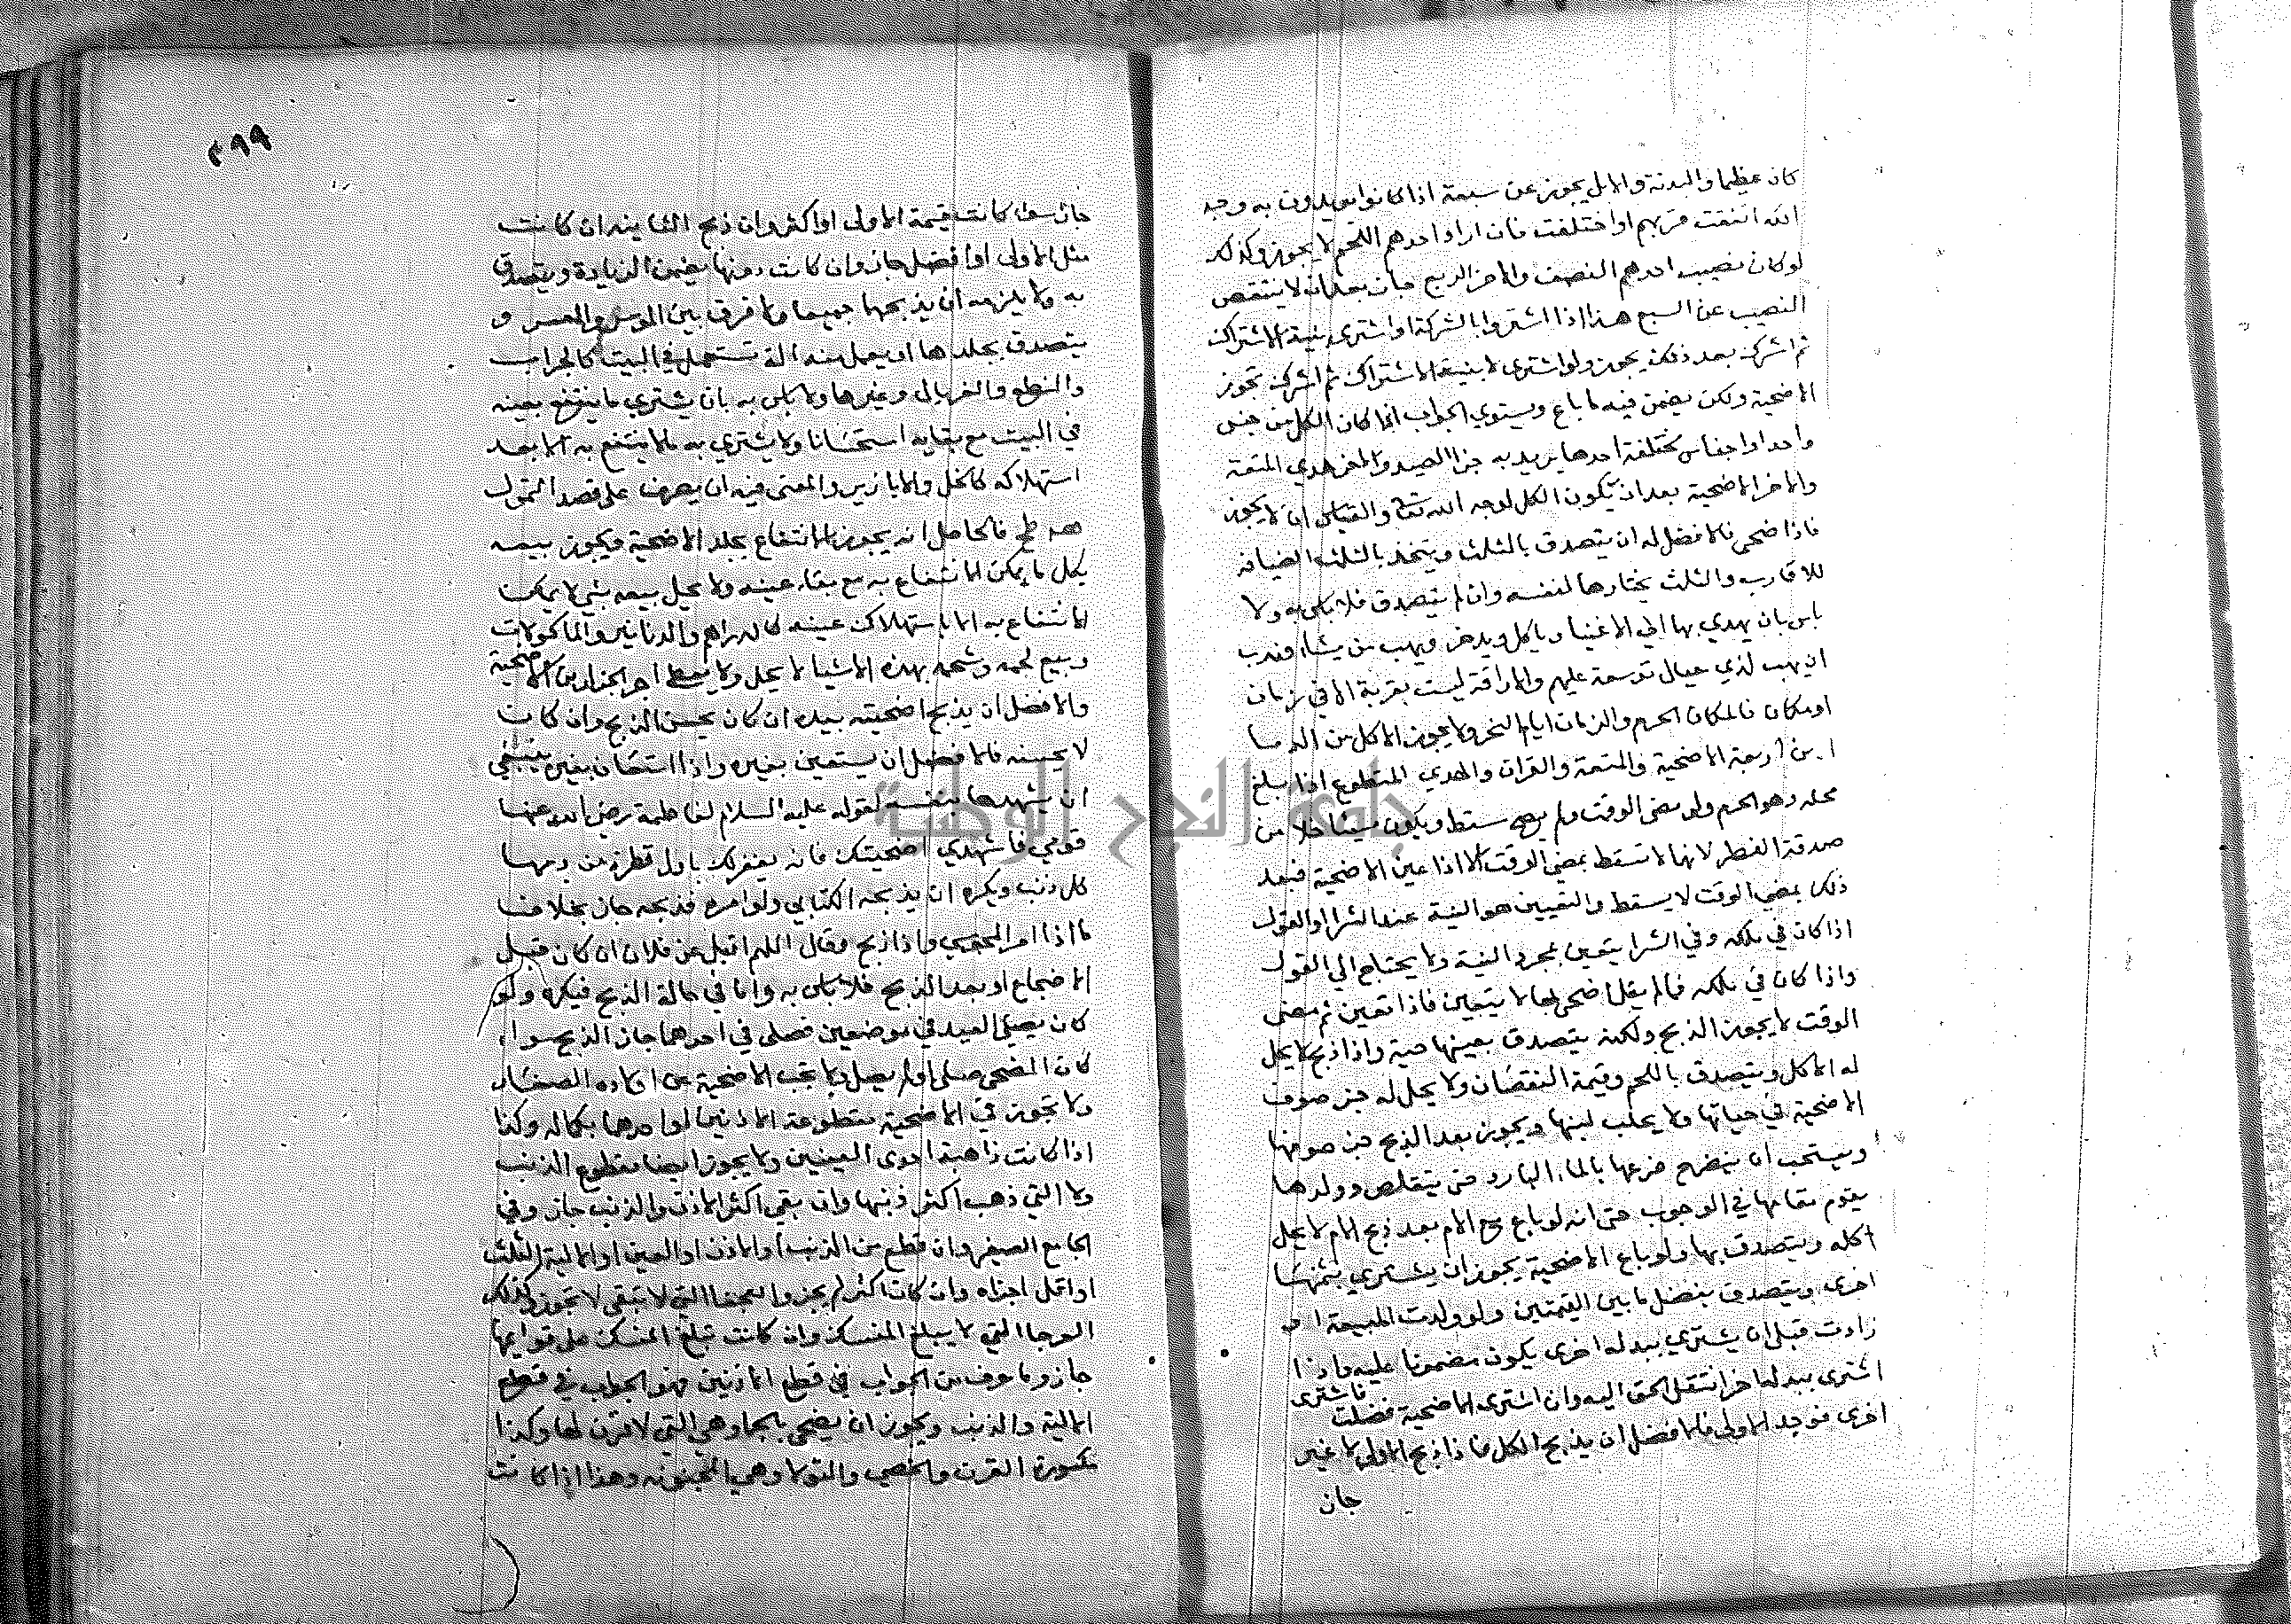 كان عظيما والبدنة والابل يجوز عن سبعة اذا كانوا يريدون به وجه
الله اتفقت قربهم او اختلفت فان اراد احدهم اللحم لا يجوز وكذلك
لو كان نصيب احدهم النصف والاخر الربع جاز بعد ان لا ينتقص
النصيب عن السبع هذا اذا اشتروا بالشركة او اشترى بنية الاشتراك
ثم اشرك بعد ذلك يجوز ولو اشترى لا بنية الاشتراك ثم اشرك تجوز
الاضحية ولكن يضمن فيه ما باع ويستوي الجواب اذا كان الكل من جنس
واحد او اجناس مختلفة احدها يريد به جزا الصيد والاخر هدي المتعة
والاخر الاضحية بعد ان يكون الكل لوجه الله تعالى والقياس ان لا يجوز
فاذا ضحى فالافضل له ان يتصدق بالثلث ويتخذ بالثلث الضيافة
للاقارب والثلث يختارها لنفسه وان لم يتصدق فلا باس به ولا
باس بان يهدي بها الى الاغنيا وياكل ويدخر ويهب من يشا وندب
ان يهب لذي عيال توسعة عليهم والاراقة ليست بقربة الا في زمان
او مكان فالمكان الحرم والزمان ايام النحر ولا يجوز الاكل من الدما
الا من اربعة الاضحية والمتعة والقران والهدي المتطوع اذا بلغ
محله وهو الحرم ولو مضى الوقت ولم يضح سقط ويكون مسيئا خلا من
صدقة الفطر لانها لا تسقط بمضي الوقت الا اذا عين الاضحية فبعد
ذلك بمضي الوقت لا يسقط والتعيين هو النية عند الشرا او القول
اذا كان في ملكه وفي الشرا يتعين بمجرد النية ولا يحتاج الى القول
واذا كان في ملكه فما لم يقل اضحي بها لا يتعين فاذا تعين ثم مضى
الوقت لا يجوز الذبح ولكنه يتصدق بعينها حية واذا ذبح لا يحل
له الاكل ويتصدق باللحم وقيمة النقصان ولا يحل له جز صوف
الاضحية في حياتها ولا يحلب لبنها ويجوز بعد الذبح جز صوفها
ويستحب ان ينضح ضرعها بالماء البارد حتى يتقلص وولدها
يقوم مقامها في الوجوب حتى انه لو باع مع الام بعد ذبح الام لا يحل
اكله ويتصدق بها ولو باع الاضحية يجوز ان يشتري بثمنها
اخرى ويتصدق بفضل ما بين القيمتين ولو ولدت المبيعة او
زادت قبل ان يشتري ببدله اخرى يكون مضمونا عليه واذا
اشترى ببدلها اخر انتقل الحق اليه وان اشترى الاضحية فضلت فاشترى
اخرى فوجد الاولى فالافضل ان يذبح الكل فاذا ذبح الاولى لا غير
جاز
٢٩٩
جاز سوا كانت قيمة الاولى او اكثر وان ذبح الثانية ان كانت
مثل الاولى او افضل جاز وان كانت دونها يضمن الزيادة ويتصدق
به ولا يلزمه ان يذبحها جميعا ولا فرق بين الموسر والمعسر و
يتصدق بجلدها او يعمل منه آلة تستعمل في البيت كالجراب
والنطع والغربال وغيرها ولا باس به بان يشتري ما ينتفع بعينه
في البيت مع بقايه استحسانا ولا يشتري به ما لا ينتفع به الا بعد
استهلاكه كالخل والابازير والمعنى فيه ان يصرف على قصد التمول
فالحاصل انه يجوز الانتفاع بجلد الاضحية ويجوز بيعه
بكل ما يمكن الانتفاع به مع بقاء عينه ولا يحل بيعه بشي لا يمكن
الانتفاع به الا باستهلاك عينه كالدراهم والدنانير والماكولات
وبيع لحمه وشحمه بهذه الاشيا لا يحل ولا يعطى اجر الجزار من الاضحية
والافضل ان يذبح اضحيته بيده ان كان يحسن الذبح وان كان
لا يحسنه فالافضل ان يستعين بغيره واذا استعان بغيره ينبغي
ان يشهدها بنفسه لقوله عليه السلام لفاطمة رضي الله عنها
قومي فاشهدي اضحيتك فانه يغفر لك باول قطرة من دمها
كل ذنب ويكره ان يذبحه الكتابي ولو امره فذبحه جاز بخلاف
ما اذا امر المجوسي واذا ذبح وقال اللهم اقبل عن فلان ان كان قبل
الاضجاع او بعد الذبح فلا باس به واما في حالة الذبح فيكره ولو
كان يصلى العيد في موضعين فصلى في احدهما جاز الذبح سواء
كان المضحي صلى او لم يصل ولا تجب الاضحية عن اولاده الصغار
ولا تجوز في الاضحية مقطوعة الاذنين او احدها بكماله وكذا
اذا كانت ذاهبة احدى العينين ولا يجوز ايضا مقطوع الذنب
ولا التي ذهب اكثر ذنبها وان بقي اكثر الاذن والذنب جاز وفي
الجامع الصغير وان قطع من الذنب او الاذن او العين او الالية الثلث
او اقل اجزاه وان كان اكثر لم يجز والعجفا التي لا تنقي لا تجوز وكذلك
العرجا التي لا يبلغ المنسك وان كانت تبلغ المنسك على قوايمها
جاز وما عرف من الجواب في قطع الاذنين فهو الجواب في قطع
الالية والذنب ويجوز ان يضحى بالجما وهي التي لا قرن لها وكذا
مكسورة القرن والخصي والثولا وهي المجنونة وهذا اذا كانت
جامعة النجاح الوطنية